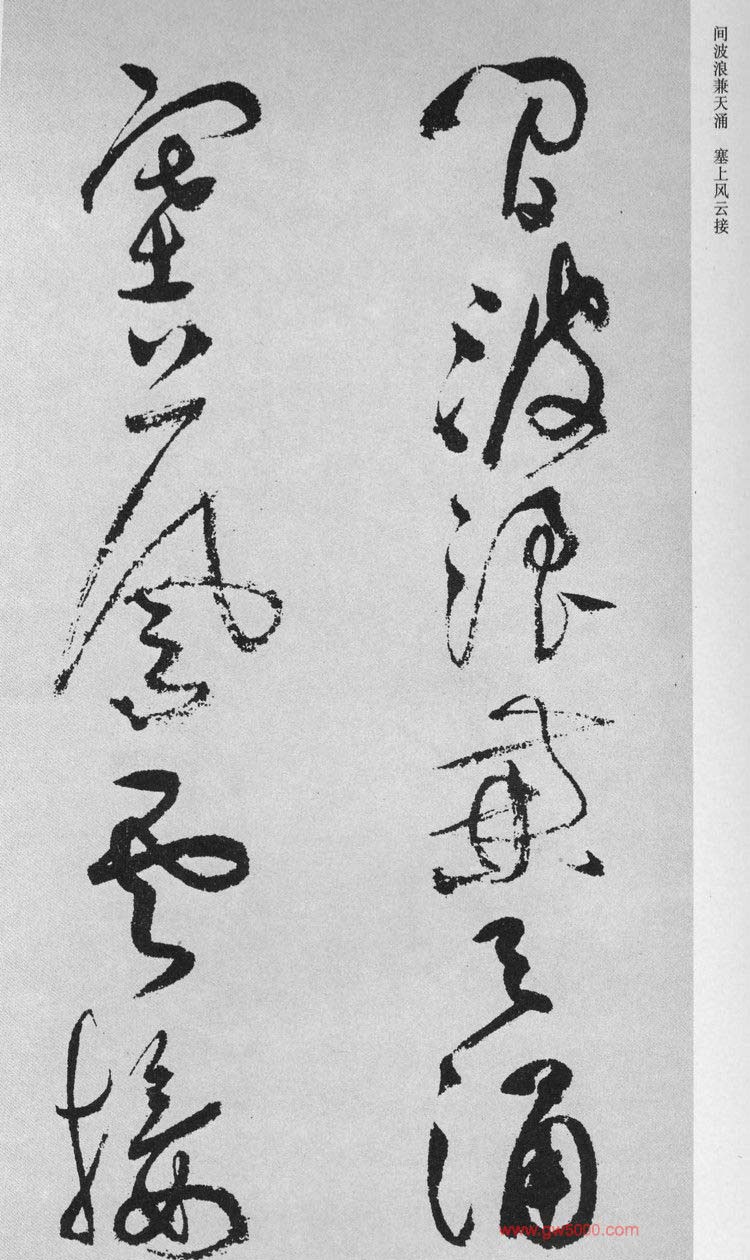 间波浪兼天涌　塞上风云接
間波浪兼天涌
塞上風雲接
www.gw5000.com